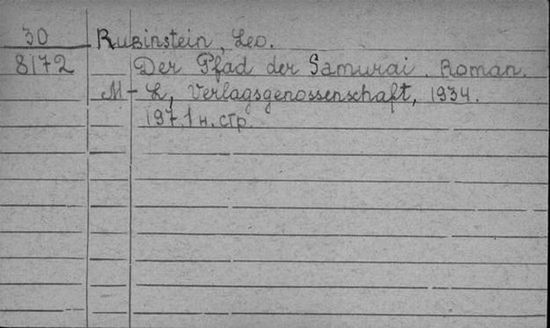 30 Rubinstein, Leo.
8172 Der Pfad der Samurai. Roman.
M-L, Verlagsgenossenschaft, 1934.
197, 1 н. стр.